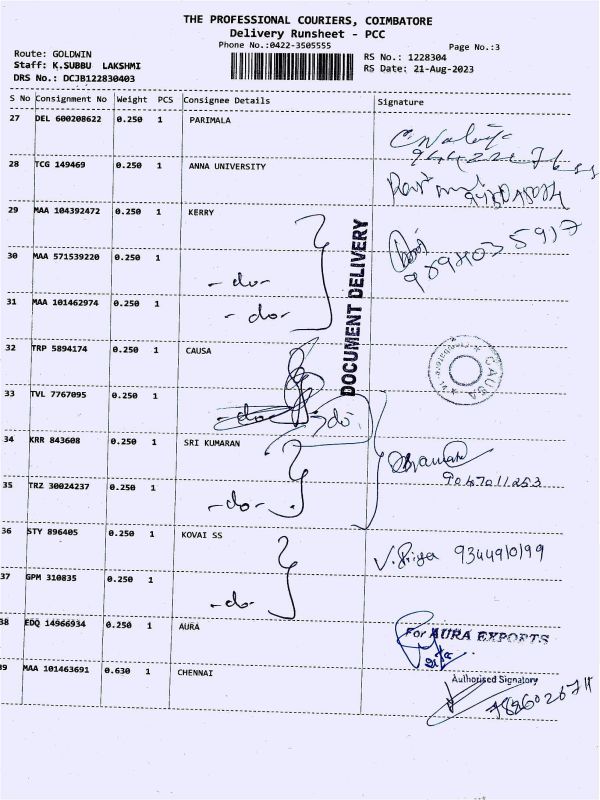 THE PROFESSIONAL COURIERS, COIMBATORE
Delivery Runsheet - PCC
Phone No.:0422-3505555
Page No.:3
Route: GOLDWIN
Staff: K.SUBBU LAKSHMI
DRS No.: DCJB122830403
RS No.: 1228304
RS Date: 21-Aug-2023
S No Consignment No Weight PCS Consignee Details Signature
27 DEL 600208622 0.250 1 PARIMALA
28 TCG 149469 0.250 1 ANNA UNIVERSITY
29 MAA 104392472 0.250 1 KERRY
9894035917
30 MAA 571539220 0.250 1 -do-
31 MAA 101462974 0.250 1 -do-
DOCUMENT DELIVERY
32 TRP 5894174 0.250 1 CAUSA
CAUSA
33 TVL 7767095 0.250 1 -do-
34 KRR 843608 0.250 1 SRI KUMARAN
9047011253
35 TRZ 30024237 0.250 1 -do-
36 STY 896405 0.250 1 KOVAI SS V. Priya 9344910199
37 GPM 310835 0.250 1 -do-
38 EDQ 14966934 0.250 1 AURA For AURA EXPORTS
39 MAA 101463691 0.630 1 CHENNAI Authorised Signatory